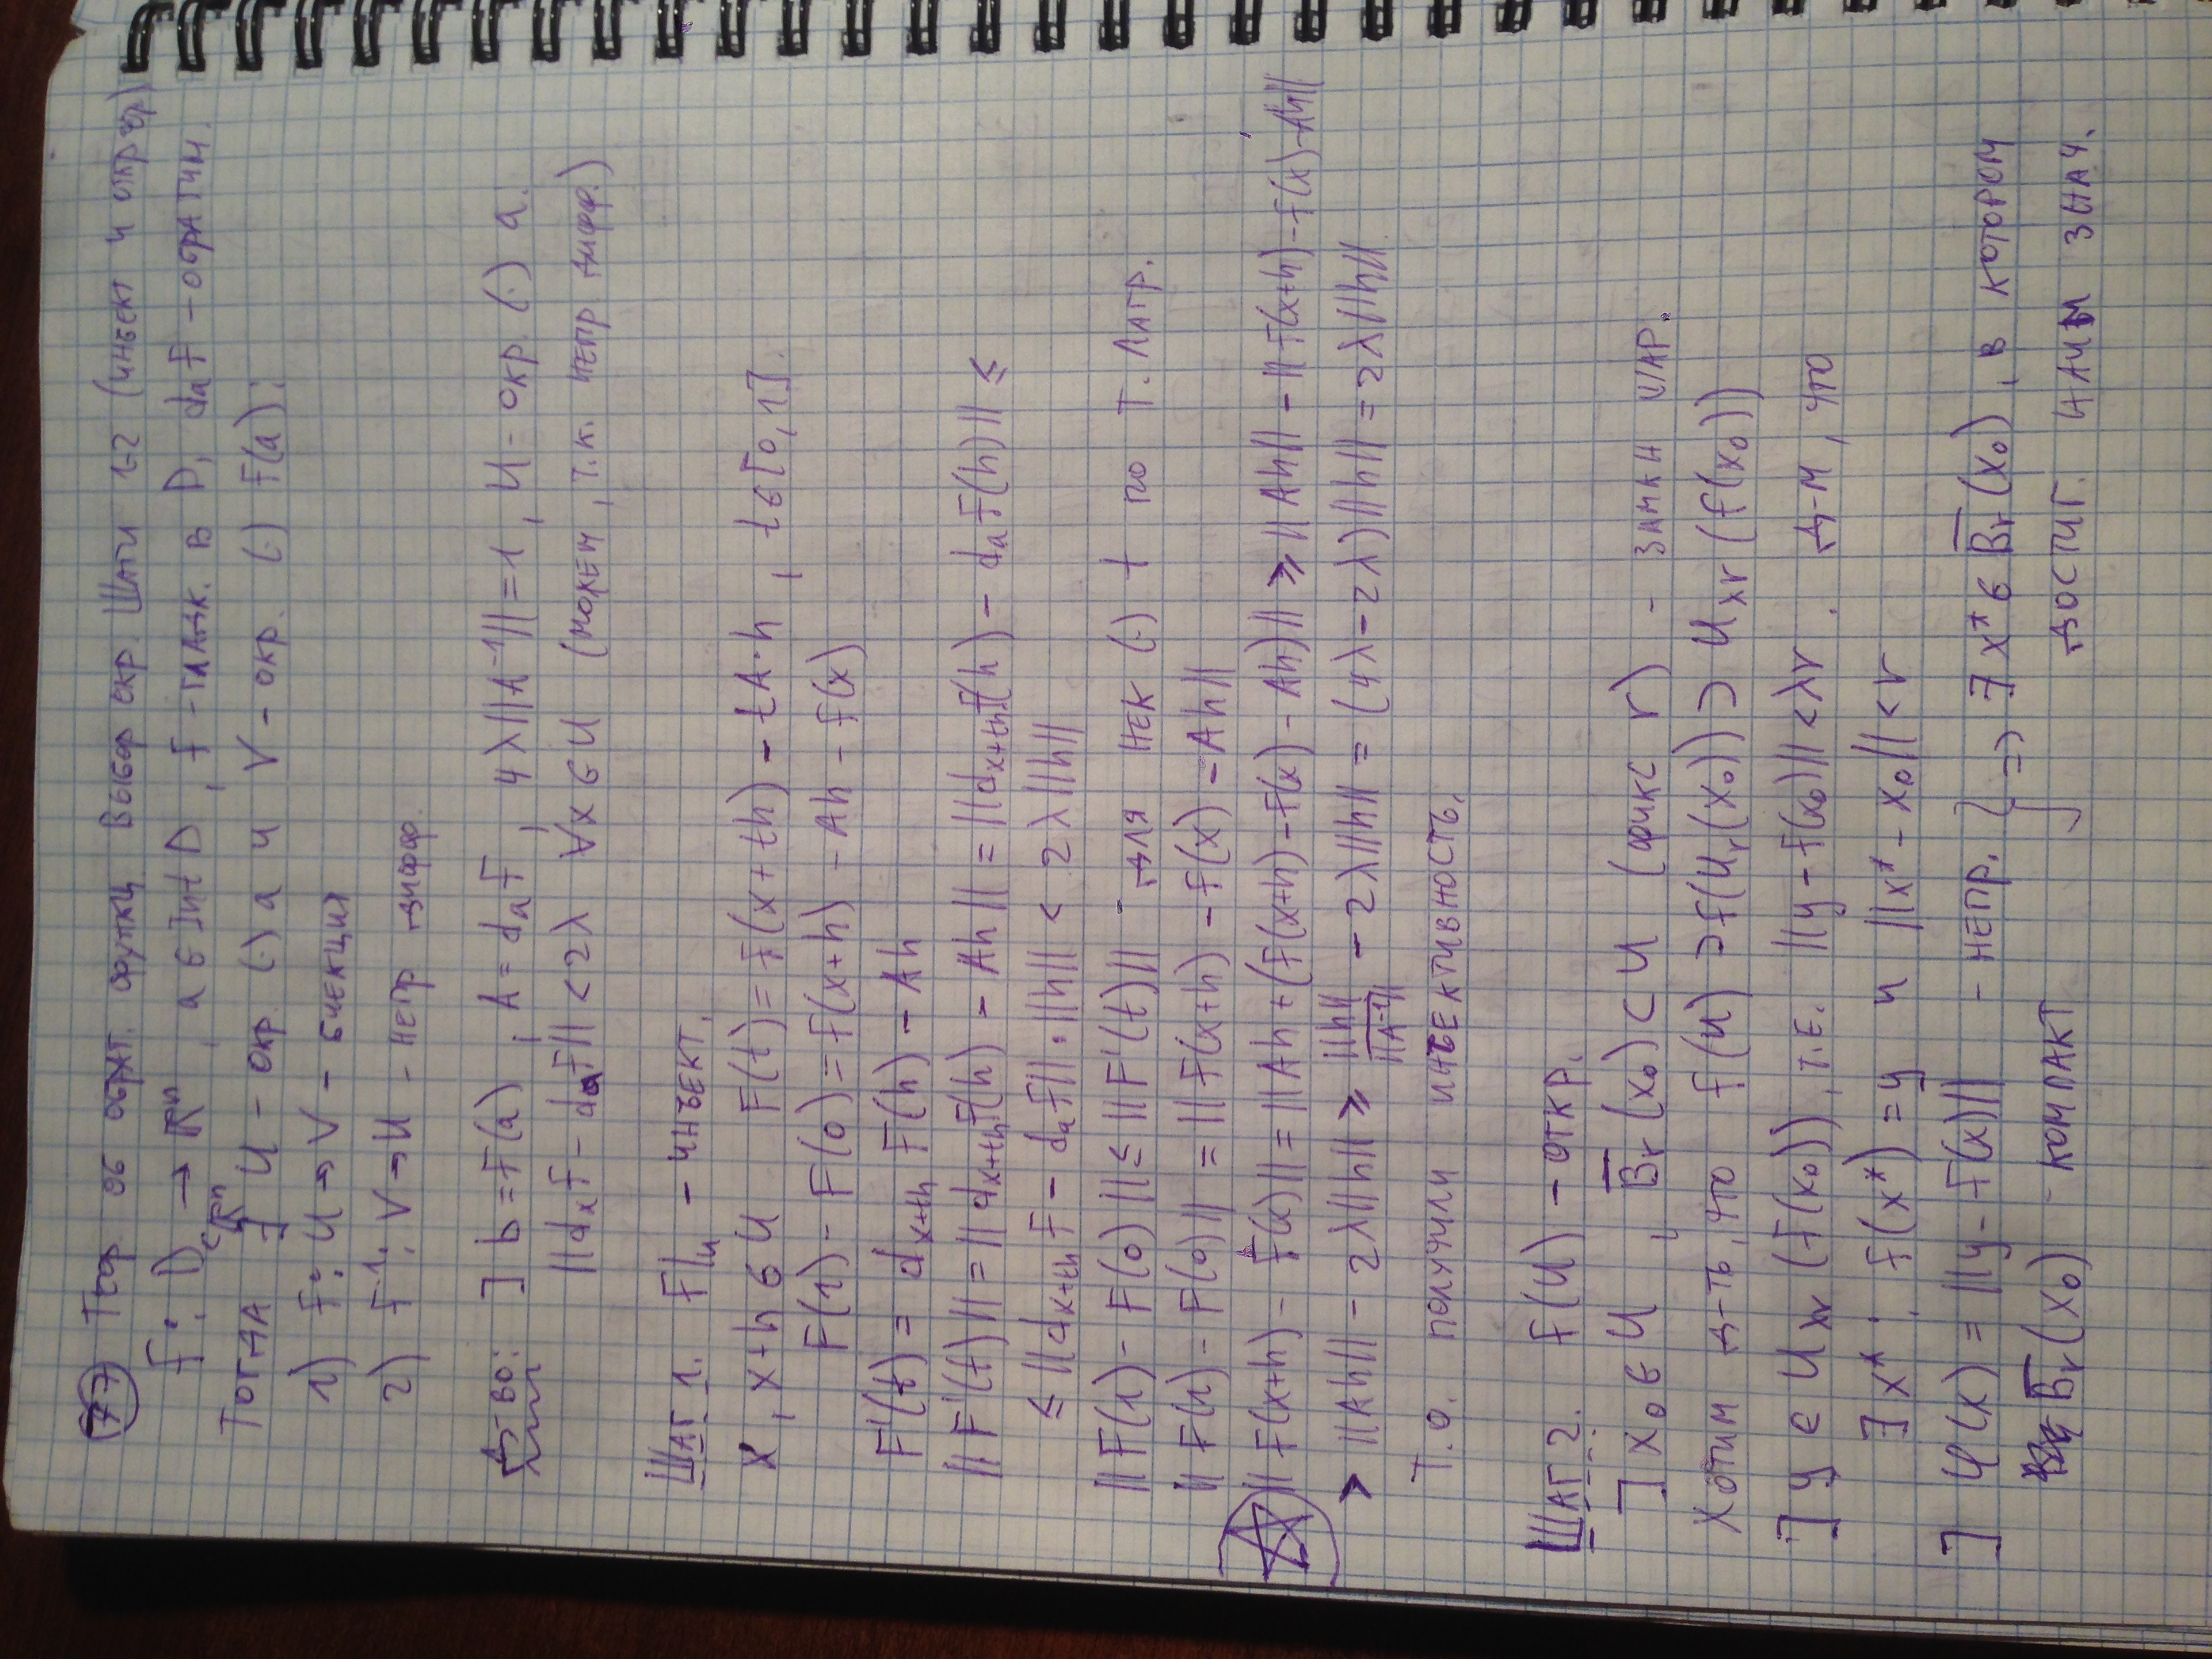 77 Теор. об обрат. функц. Выбор окр. Шаги 1-2 (инъект и откр)
f: D⊂ℝⁿ → ℝⁿ, a ∈ Int D, f - гладк. в D, dₐf - обратим.
Тогда ∃ U - окр. (·) a и V - окр. (·) f(a):
1) f: U → V - биекция
2) f⁻¹: V → U - непр дифф.
Д-во: ] b = f(a), A = dₐf, 4λ||A⁻¹|| = 1, U - окр. (·) a:
||dₓf - dₐf|| < 2λ ∀x ∈ U (можем, т.к. непр дифф.)
Шаг 1. f|ᵤ - инъект.
x, x+h ∈ U F(t) = f(x+th) - tA·h, t ∈ [0,1].
F(1) - F(0) = f(x+h) - Ah - f(x)
F'(t) = d_{x+th} f(h) - Ah
||F'(t)|| = ||d_{x+th}f(h) - Ah|| = ||d_{x+th}f(h) - dₐf(h)|| ≤
≤ ||d_{x+th}f - dₐf||·||h|| < 2λ||h||
||F(1) - F(0)|| ≤ ||F'(t)|| - для нек (·) t по т. Лагр.
||F(1) - F(0)|| = ||f(x+h) - f(x) - Ah||
||f(x+h) - f(x)|| = ||Ah + (f(x+h) - f(x) - Ah)|| ≥ ||Ah|| - ||f(x+h) - f(x) - Ah||
> ||Ah|| - 2λ||h|| ≥ ||h||/||A⁻¹|| - 2λ||h|| = (4λ-2λ)||h|| = 2λ||h||
Т.о. получили инъективность.
Шаг 2. f(U) - откр.
] x₀ ∈ U, B̅ᵣ(x₀) ⊂ U (фикс r) - замкн шар.
Хотим д-ть, что f(U) ⊃ f(Uᵣ(x₀)) ⊃ U_{λr}(f(x₀))
] y ∈ U_{λr}(f(x₀)), т.е. ||y - f(x₀)|| < λr. Д-м, что
∃ x*: f(x*) = y и ||x* - x₀|| < r
] φ(x) = ||y - f(x)|| - непр. } => ∃ x* ∈ B̅ᵣ(x₀), в котором
B̅ᵣ(x₀) - компакт достиг. наим знач.